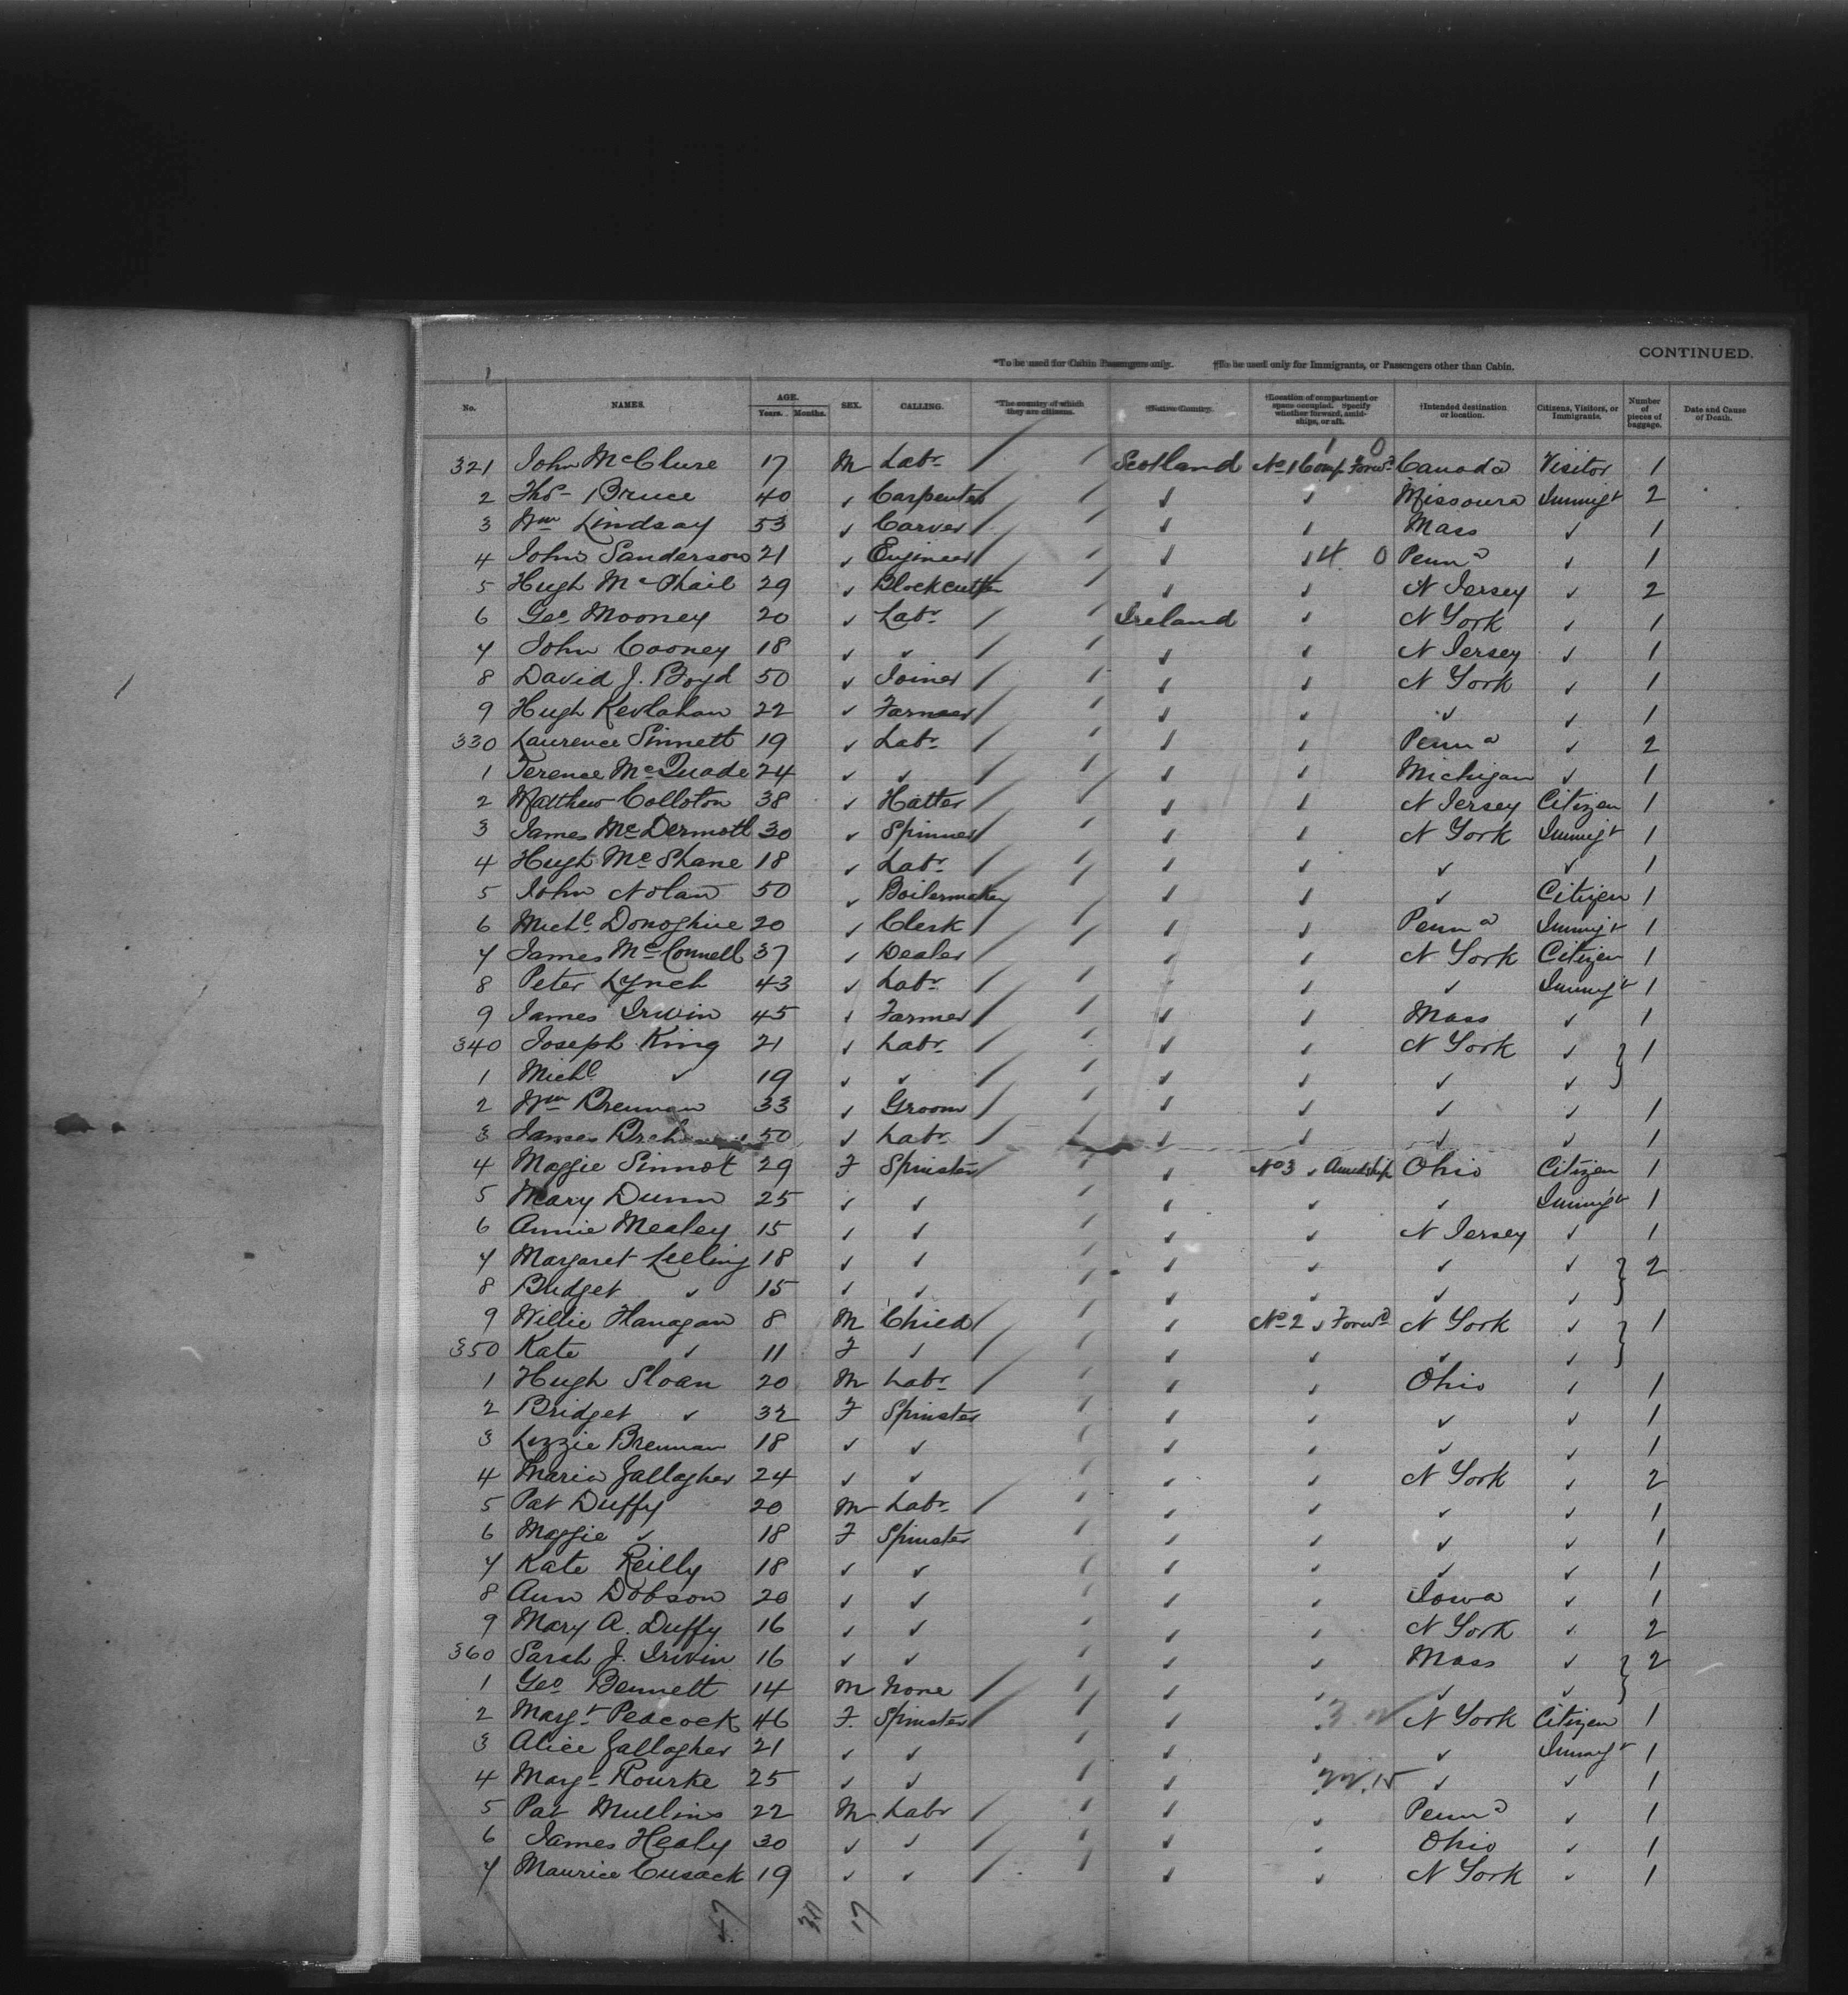 CONTINUED.
*To be used for Cabin Passengers only. †To be used only for Immigrants, or Passengers other than Cabin.
No. NAMES. AGE. Years. Months. SEX. CALLING. *The country of which they are citizens. †Native Country. †Location of compartment or space occupied. Specify whether forward, amidships, or aft. †Intended destination or location. Citizens, Visitors, or Immigrants. Number of pieces of baggage. Date and Cause of Death.
321 John McClure 17 M Labr Scotland No 1 Comp Forwd Canada Visitor 1
2 Thos Bruce 40 ✓ Carpenter ✓ ✓ Missoura Immigt 2
3 Wm Lindsay 53 ✓ Carver ✓ ✓ Mass ✓ 1
4 John Sanderson 21 ✓ Engineer ✓ ✓ 4 0 Penna ✓ 1
5 Hugh McPhail 29 ✓ Blockcutter ✓ ✓ N Jersey ✓ 2
6 Geo Mooney 20 ✓ Labr Ireland ✓ N York ✓ 1
7 John Cooney 18 ✓ ✓ ✓ ✓ N Jersey ✓ 1
8 David J. Boyd 50 ✓ Joiner ✓ ✓ N York ✓ 1
9 Hugh Kevlahan 22 ✓ Farmer ✓ ✓ ✓ ✓ 1
330 Laurence Sinnett 19 ✓ Labr ✓ ✓ Penna ✓ 2
1 Terence McQuade 24 ✓ ✓ ✓ ✓ Michigan ✓ 1
2 Matthew Colloton 38 ✓ Hatter ✓ ✓ N Jersey Citizen 1
3 James McDermott 30 ✓ Spinner ✓ ✓ N York Immigt 1
4 Hugh McShane 18 ✓ Labr ✓ ✓ ✓ ✓ 1
5 John Nolan 50 ✓ Boilermaker ✓ ✓ ✓ Citizen 1
6 Michl Donoghue 20 ✓ Clerk ✓ ✓ Penna Immigt 1
7 James McConnell 37 ✓ Dealer ✓ ✓ N York Citizen 1
8 Peter Lynch 43 ✓ Labr ✓ ✓ ✓ Immigt 1
9 James Irwin 45 ✓ Farmer ✓ ✓ Mass ✓ 1
340 Joseph King 21 ✓ Labr ✓ ✓ N York ✓ } 1
1 Michl ✓ 19 ✓ ✓ ✓ ✓ ✓ ✓
2 Wm Brennan 33 ✓ Groom ✓ ✓ ✓ ✓ 1
3 James 50 ✓ Labr ✓ ✓ ✓ ✓ 1
4 Maggie Sinnot 29 F Spinster ✓ No 3 ✓ Amidship Ohio Citizen 1
5 Mary Dunn 25 ✓ ✓ ✓ ✓ ✓ Immigt 1
6 Annie Mealey 15 ✓ ✓ ✓ ✓ N Jersey ✓ 1
7 Margaret Leeling 18 ✓ ✓ ✓ ✓ ✓ ✓ } 2
8 Bridget ✓ 15 ✓ ✓ ✓ ✓ ✓ ✓
9 Willie Flanagan 8 M Child ✓ No 2 ✓ Forwd N York ✓ } 1
350 Kate ✓ 11 F ✓ ✓ ✓ ✓ ✓
1 Hugh Sloan 20 M Labr ✓ ✓ Ohio ✓ 1
2 Bridget ✓ 32 F Spinster ✓ ✓ ✓ ✓ 1
3 Lizzie Brennan 18 ✓ ✓ ✓ ✓ ✓ ✓ 1
4 Maria Gallagher 24 ✓ ✓ ✓ ✓ N York ✓ 2
5 Pat Duffy 20 M Labr ✓ ✓ ✓ ✓ 1
6 Maggie ✓ 18 F Spinster ✓ ✓ ✓ ✓ 1
7 Kate Reilly 18 ✓ ✓ ✓ ✓ ✓ ✓ 1
8 Ann Dobson 20 ✓ ✓ ✓ ✓ Iowa ✓ 1
9 Mary A. Duffy 16 ✓ ✓ ✓ ✓ N York ✓ 2
360 Sarah J. Irwin 16 ✓ ✓ ✓ ✓ Mass ✓ } 2
1 Geo Bennett 14 M None ✓ ✓ ✓ ✓
2 Margt Peacock 46 F. Spinster ✓ N York Citizen 1
3 Alice Gallagher 21 ✓ ✓ ✓ ✓ ✓ Immigt 1
4 Margt Rourke 25 ✓ ✓ ✓ ✓ ✓ 1
5 Pat Mullins 22 M Labr ✓ ✓ Penna ✓ 1
6 James Healy 30 ✓ ✓ ✓ ✓ Ohio ✓ 1
7 Maurice Cusack 19 ✓ ✓ ✓ ✓ N York ✓ 1
47 30 17